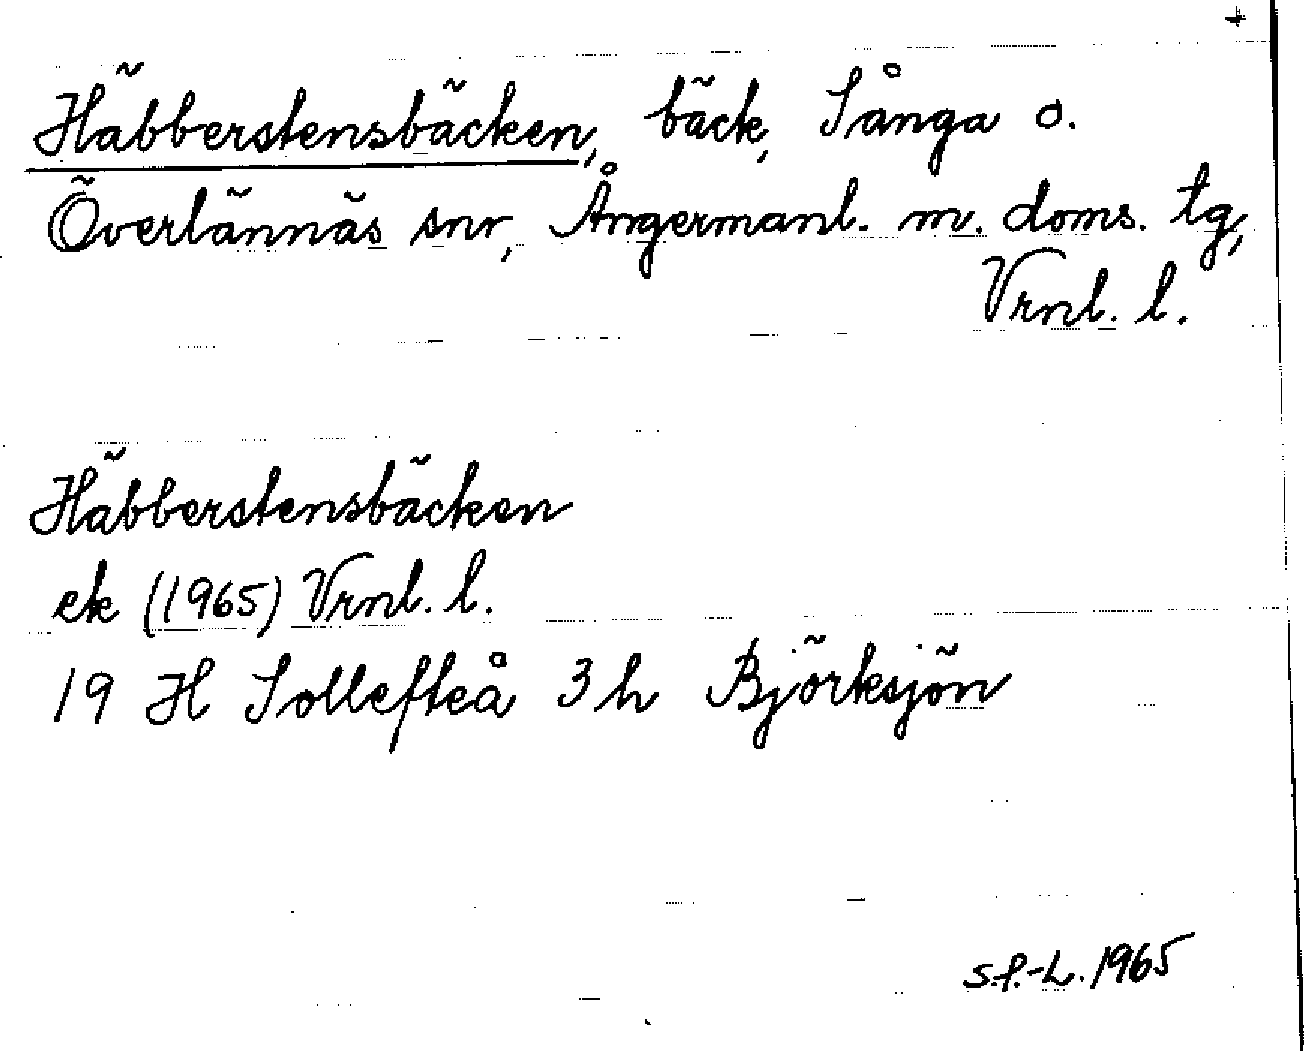 +
Häbberstensbäcken, bäck, Sånga o.
Överlännäs snr, Ångermanl. m. doms. tg,
Vrnl. l.
Häbberstensbäcken
ek (1965) Vrnl. l.
19 H Sollefteå 3h Björksjön
S.P.-L. 1965